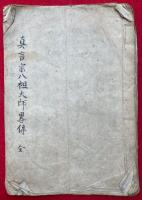 真言宗八祖大師畧傳 全